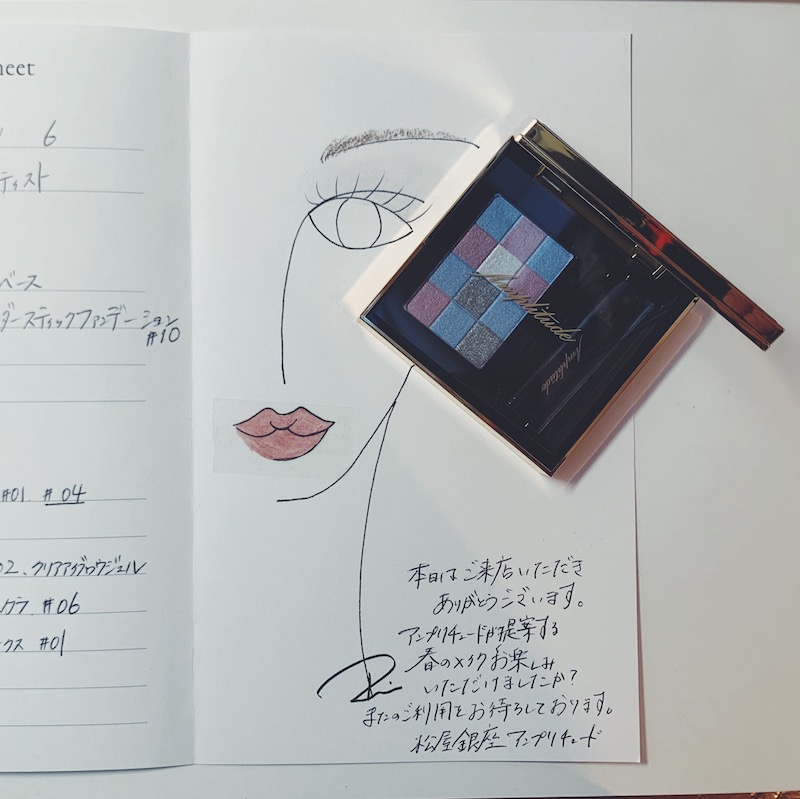 heet
6
ティスト
ベース
ダースティックファンデーション
#10
#01. #04
02、クリアアイブロウジェル
カラ #06
クス #01
Amplitude
Amplitude
本日はご来店いただき
ありがとうございます。
アンプリチュードが提案する
春のメイクお楽しみ
いただけましたか?
またのご利用をお待ちしております。
松屋銀座 アンプリチュード